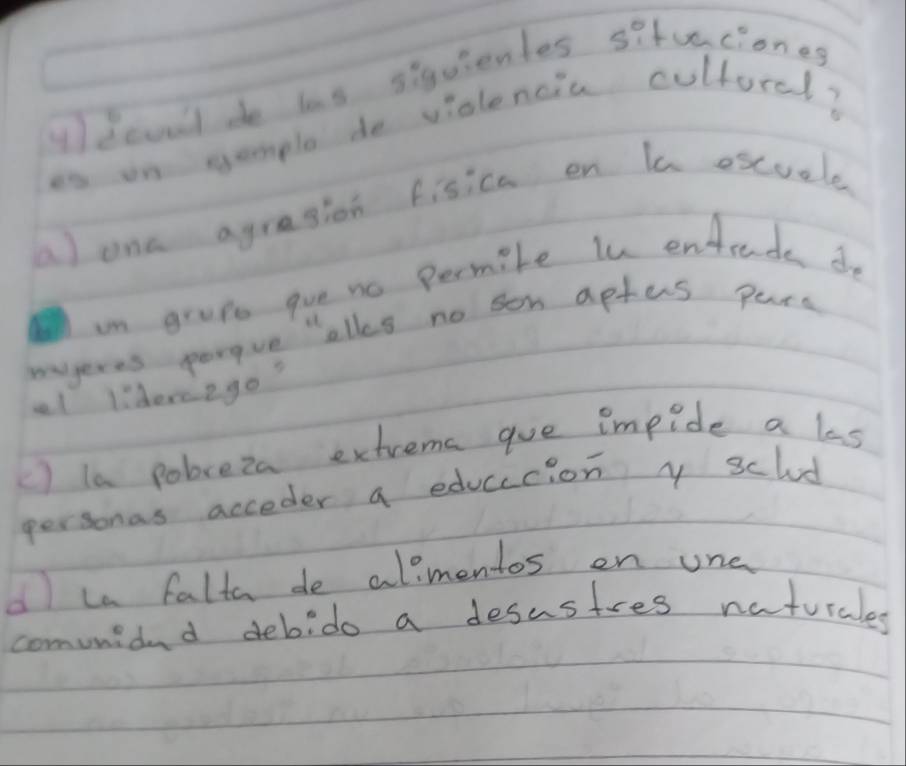 4) ¿cual de las siguientes situaciones
es un ejemplo de violencia cultural?
a) una agresión física en la escuela
b) un grupo que no permite la entrada de
mujeres porque "ellas no son aptas para
el liderazgo"
c) la pobreza extrema que impide a las
personas acceder a educación y salud
d) la falta de alimentos en una
comunidad debido a desastres naturales